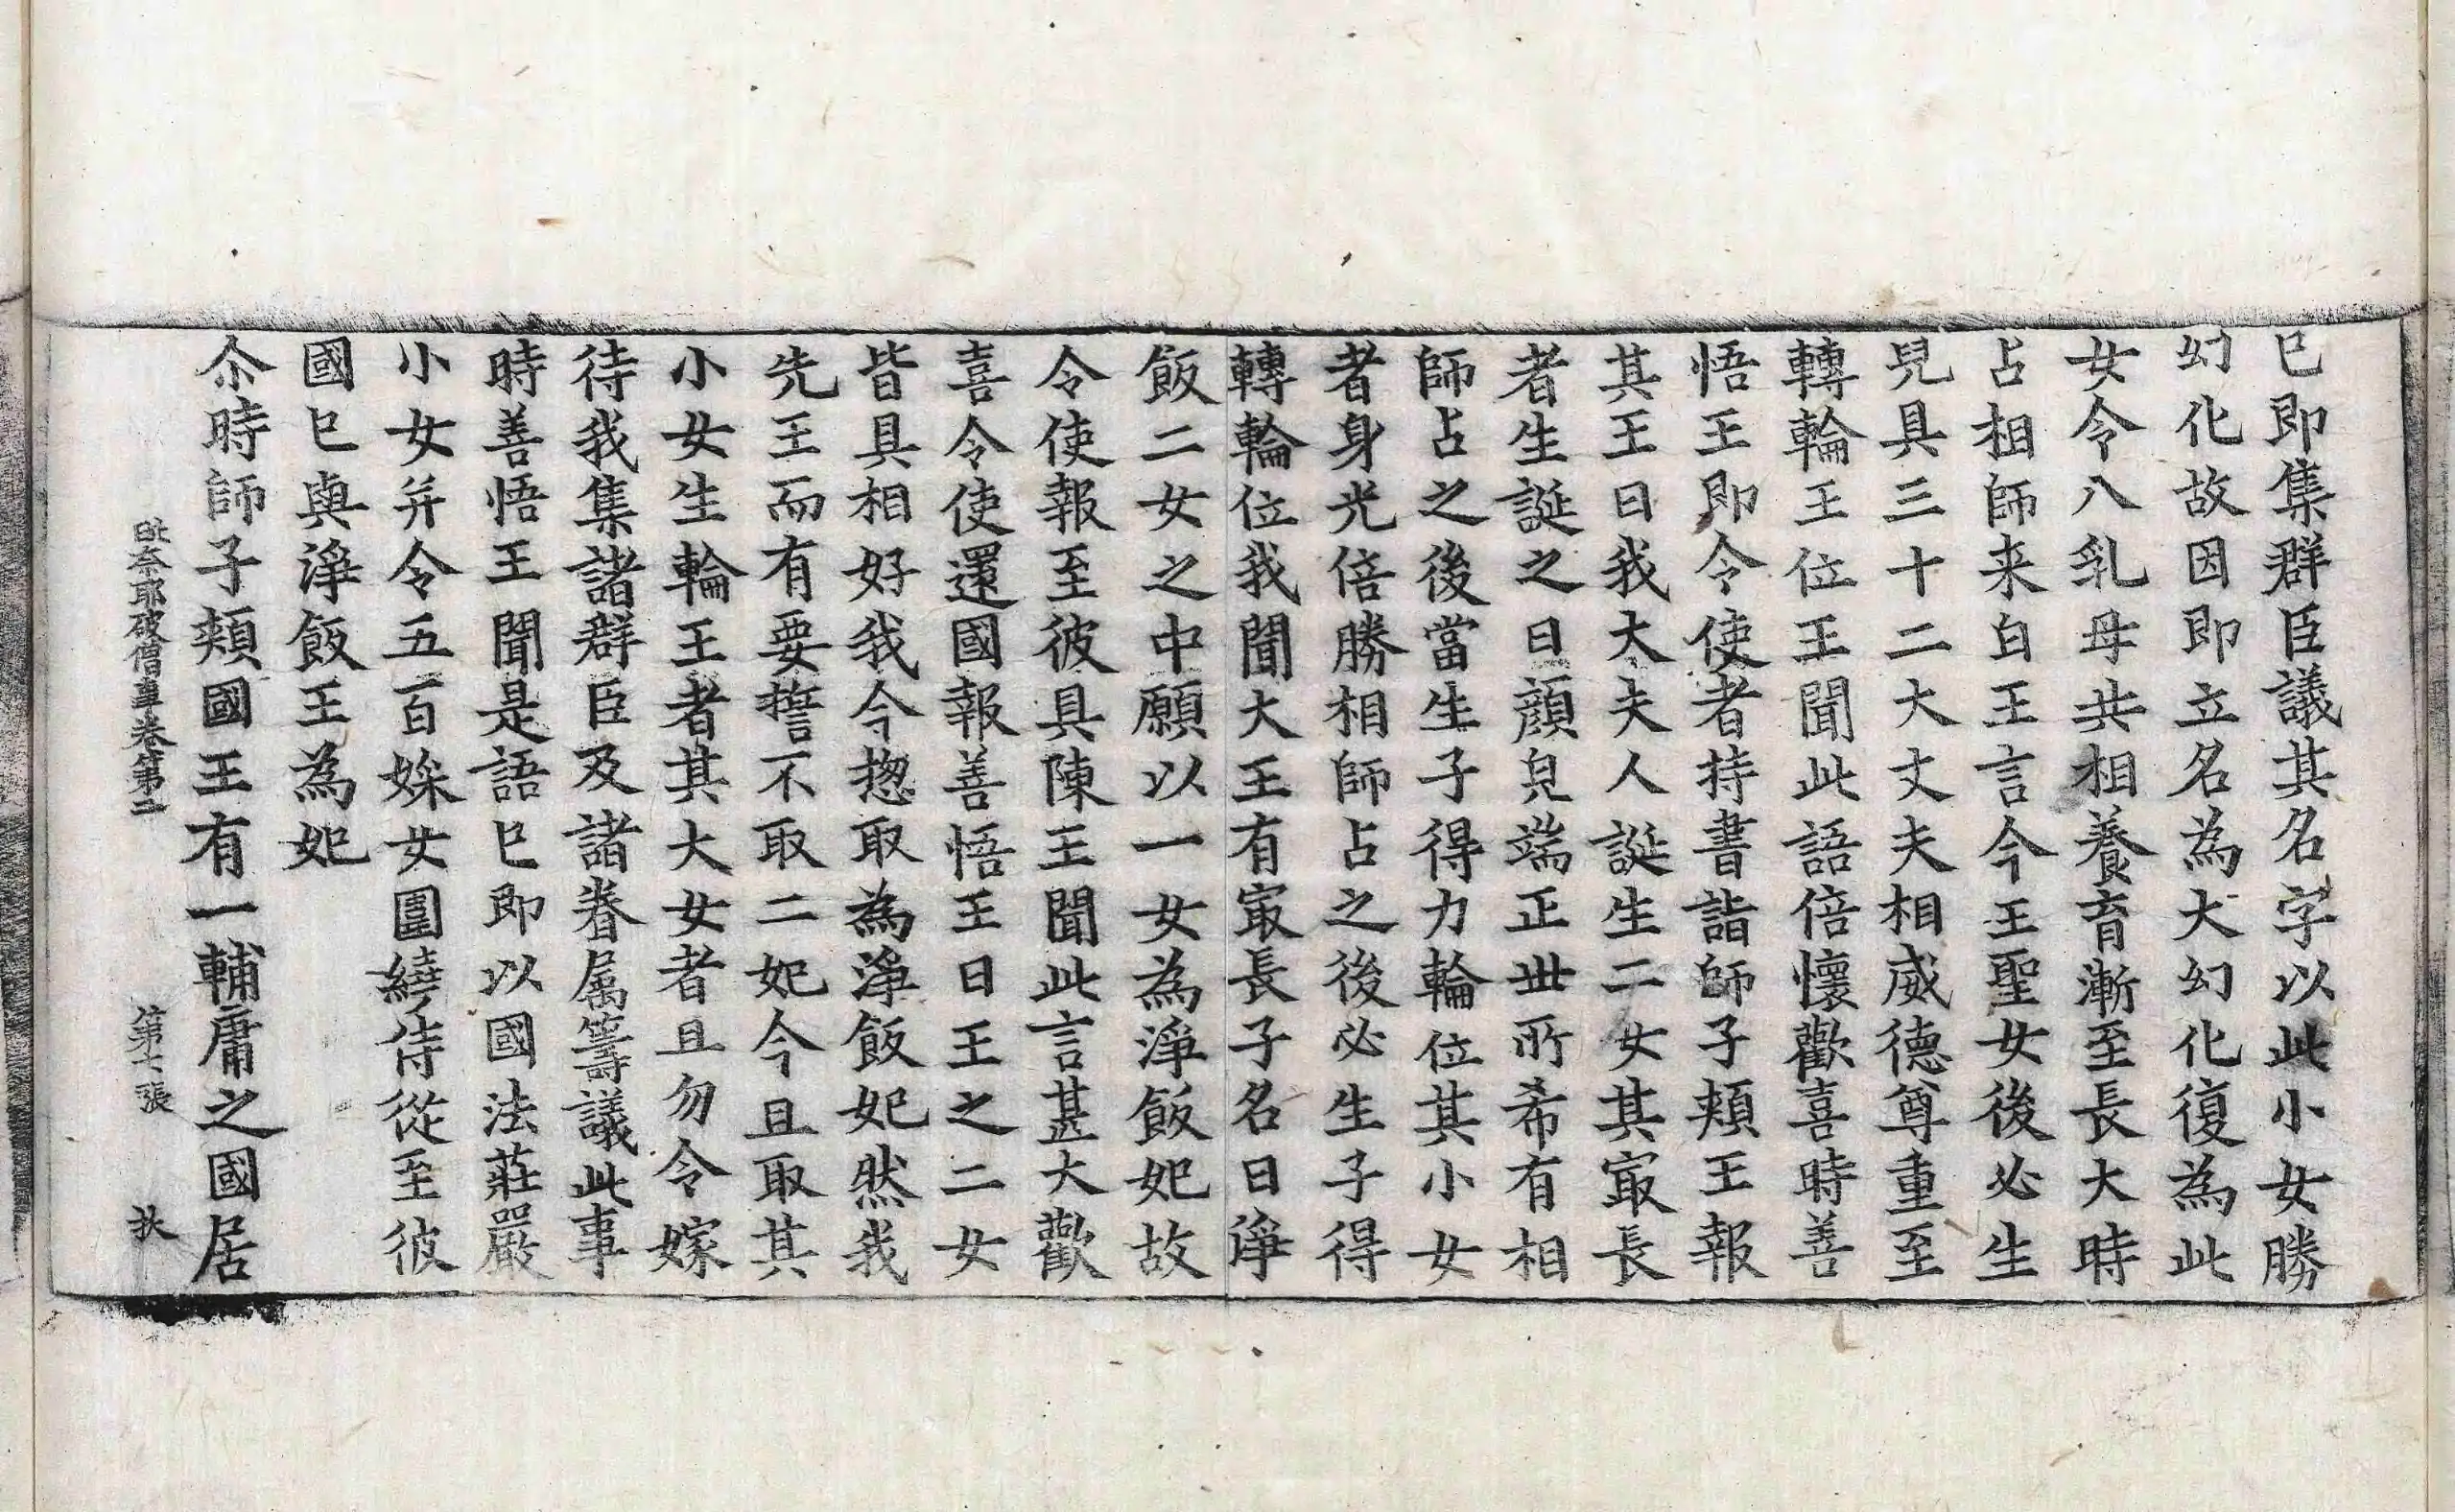 已即集群臣議其名字以此小女勝
幻化故因即立名為大幻化復為此
女令八乳母共相養育漸至長大時
占相師来白王言今王聖女後必生
皃具三十二大丈夫相威德尊重至
轉輪王位王聞此語倍懷歡喜時善
悟王即令使者持書詣師子頰王報
其王曰我大夫人誕生二女其㝡長
者生誕之日顔皃端正丗所希有相
師占之後當生子得力輪位其小女
者身光倍勝相師占之後必生子得
轉輪位我聞大王有㝡長子名曰淨
飯二女之中願以一女為淨飯妃故
令使報至彼具陳王聞此言甚大歡
喜令使還國報善悟王曰王之二女
皆具相好我今揔取為淨飯妃然我
先王而有要誓不取二妃今且取其
小女生輪王者其大女者且勿令嫁
待我集諸群臣及諸眷属籌議此事
時善悟王聞是語已即以國法莊嚴
小女并令五百婇女圍繞侍從至彼
國已與淨飯王為妃
尒時師子頰國王有一輔庸之國居
毗奈耶破僧事卷第二 第七張 扶